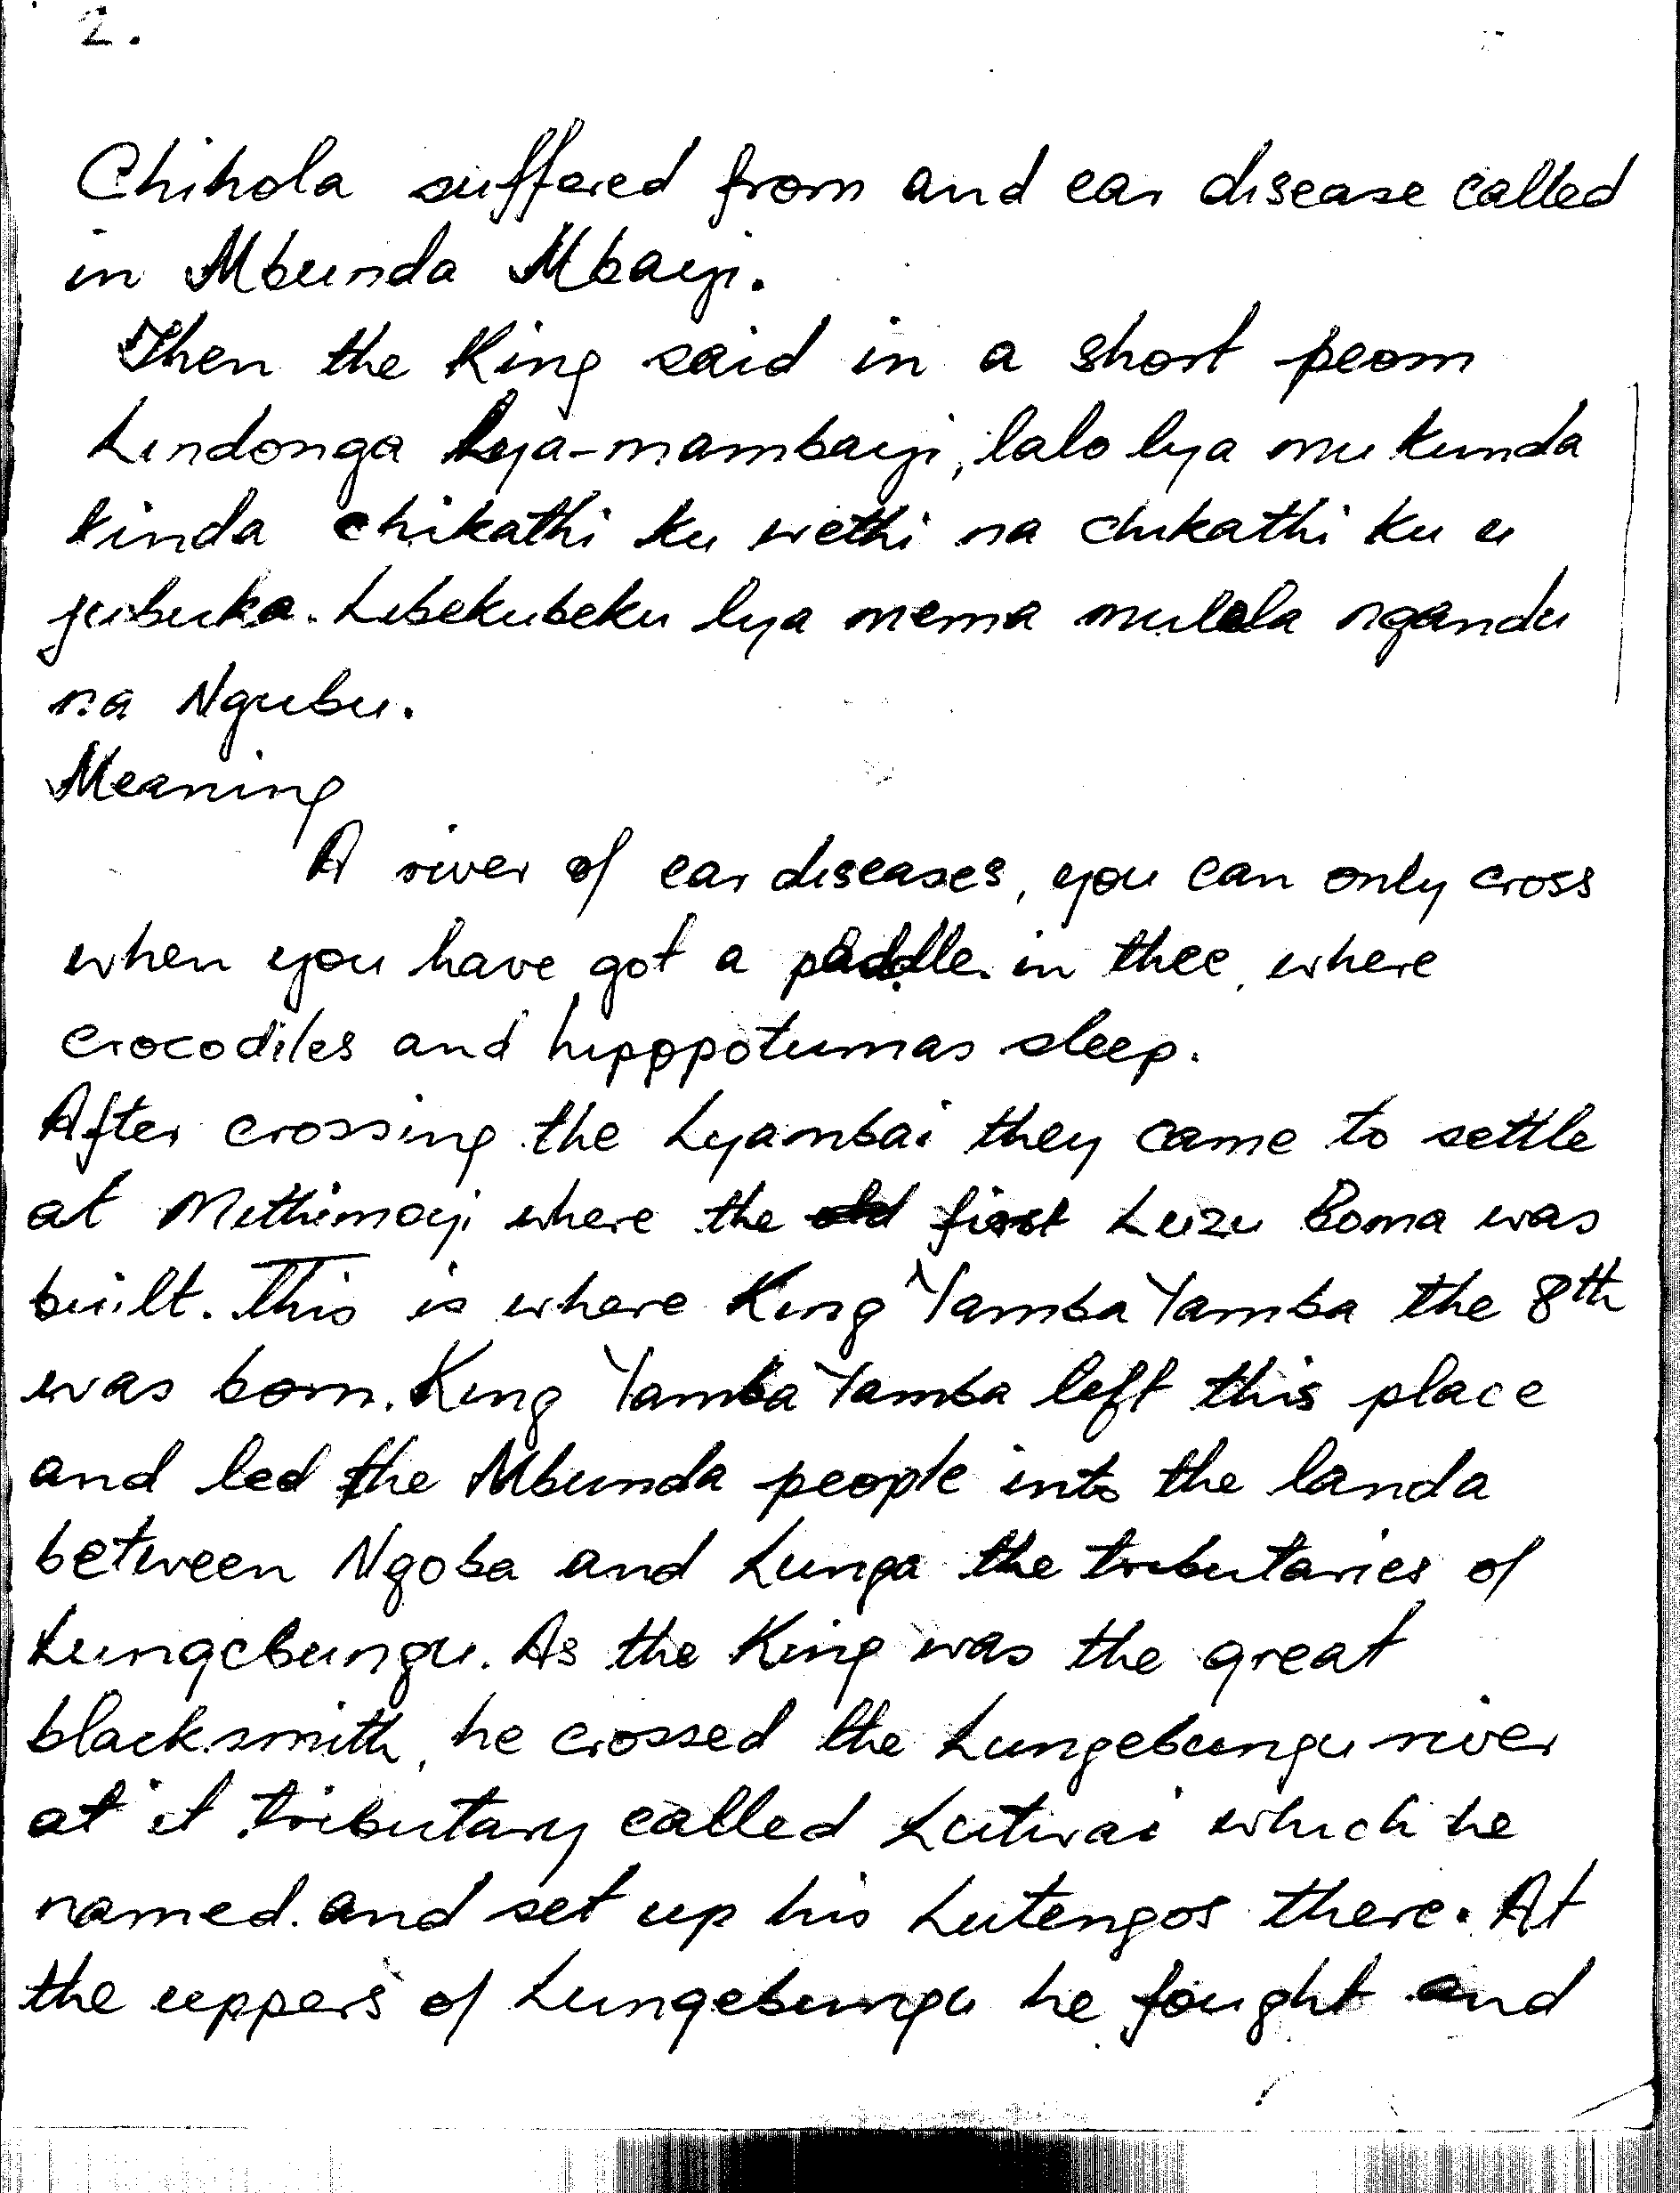 2.
Chihola suffered from and ear disease called
in Mbunda Mbayi.
Then the King said in a short peom
Lindonga Lya-mambayi, lalo lya mu kunda
kinda chikathi ku wethi na chikathi ku u
jubuka. Libekubeku lya mema mulala ngandu
na Ngubu.
Meaning
A river of ear diseases, you can only cross
when you have got a paddle in thee, where
crocodiles and hipppotumas sleep.
After crossing the Lyambai they came to settle
at Mithimoyi where the old first Luzu Boma was
built. This is where King Yamba Yamba the 8th
was born. King Yamba Yamba left this place
and led the Mbunda people into the landa
between Ngoba and Lunga the tributaries of
Lungebungu. As the King was the great
blacksmith, he crossed the Lungebungu river
at it tributary called Lutwai which he
named. and set up his Lutengos there. At
the uppers of Lungebungu he fought and